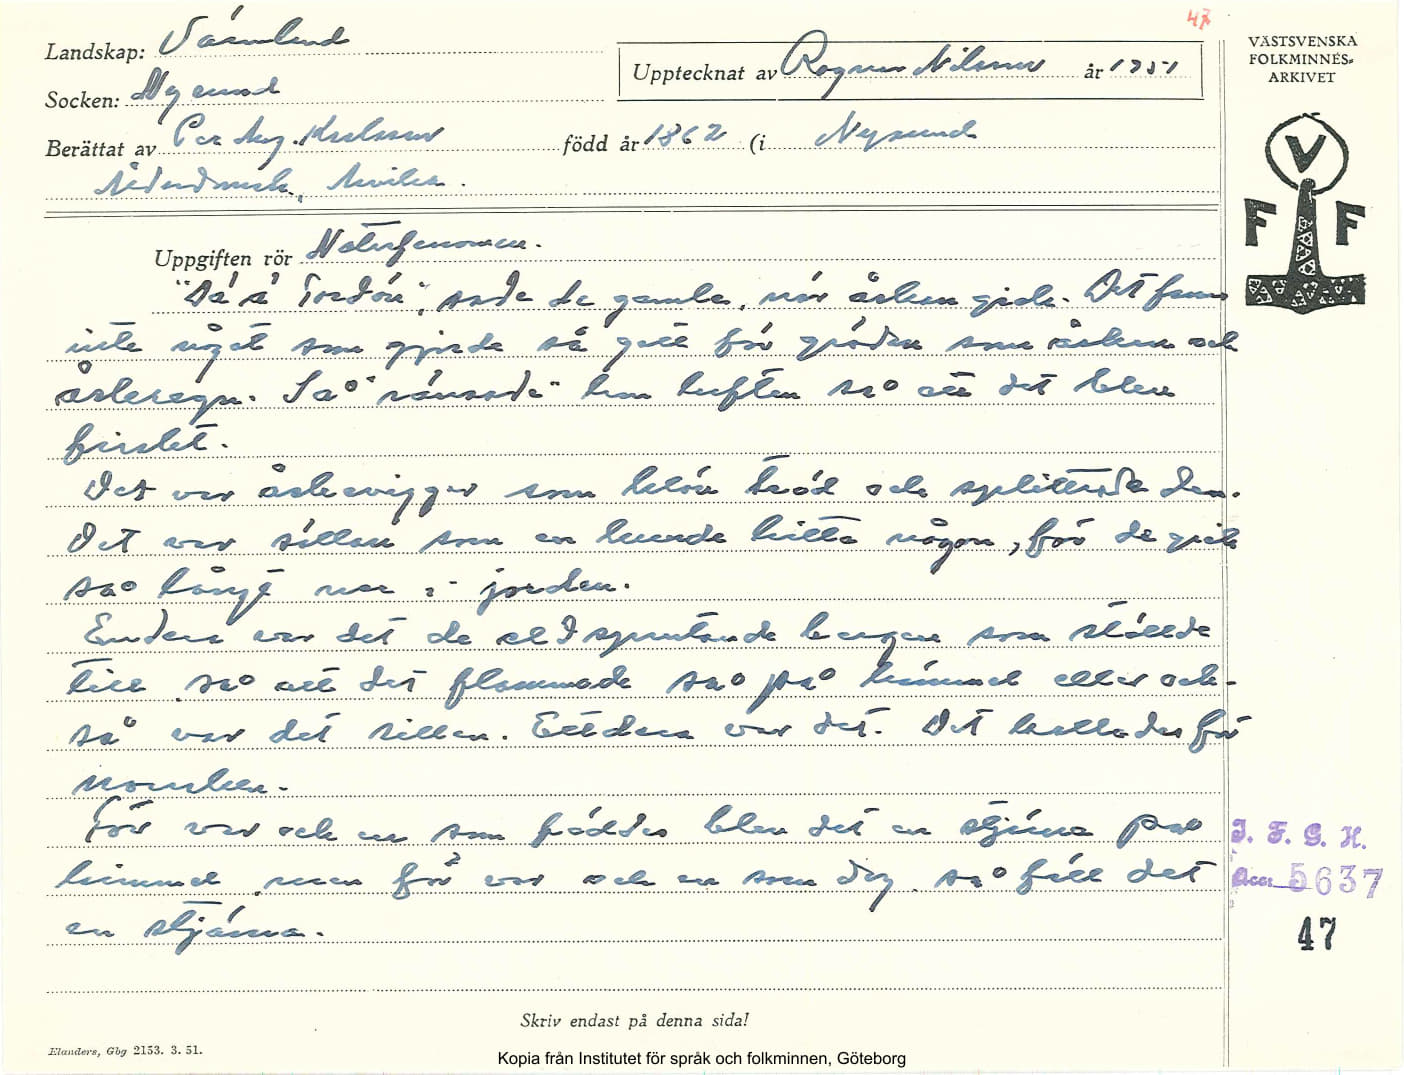 47
Landskap: Värmland
Upptecknat av Ragnar Nilsson år 1951
Socken: Nysund
Berättat av Per Aug. Karlsson född år 1862 (i Nysund
VÄSTSVENSKA
FOLKMINNES-
ARKIVET
V
F F
Uppgiften rör Naturfenomen.
"Dä ä Tordön", sade de gamla, när åskan gick. Det fanns
inte något som gjorde så gott för gröden som åskan och
åskregn. Så "ränsade" hon luften så att det blev
friskt.
Det var åskeviggar som klöv träd och splittrade dem.
Det var sällan som en kunde hitta någon, för de gick
så långt ner i jorden.
Endera var det de eldsprutande bergen som ställde
till så att det flammade så på himmel eller ock-
så var det sillen. Ettdera var det. Det kallades för
norrsken.
För var och en som föddes blev det en stjärna på
himmel, men för var och en som dog, så föll det
en stjärna.
I. F. G. H.
Acc: 5637
47
Skriv endast på denna sida!
Elanders, Gbg 2153. 3. 51.
Kopia från Institutet för språk och folkminnen, Göteborg